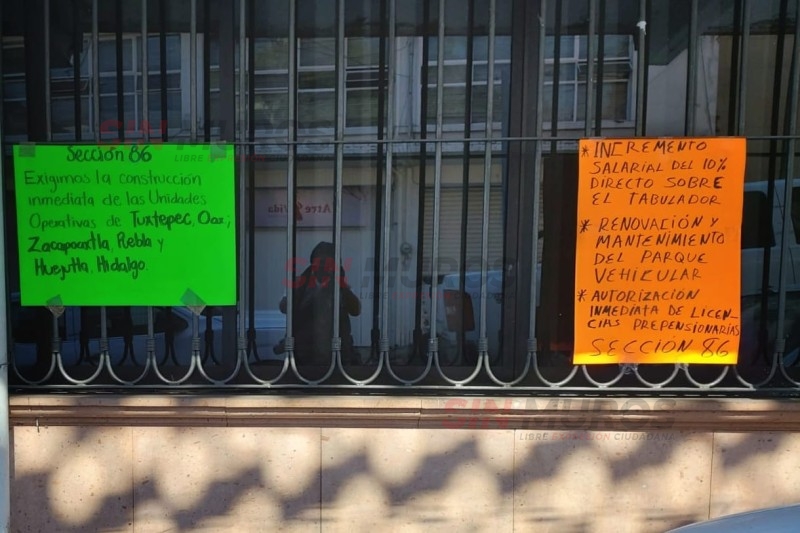 Sección 86
Exigimos la construcción
inmediata de las Unidades
Operativas de Tuxtepec, Oax;
Zacapoaxtla, Puebla y
Huejutla, Hidalgo.
* INCREMENTO
SALARIAL DEL 10%
DIRECTO SOBRE
EL TABULADOR
* RENOVACIÓN Y
MANTENIMIENTO
DEL PARQUE
VEHICULAR
* AUTORIZACIÓN
INMEDIATA DE LICEN-
CIAS PREPENSIONARIAS
SECCIÓN 86
SIN MUROS
LIBRE EXPRESIÓN CIUDADANA